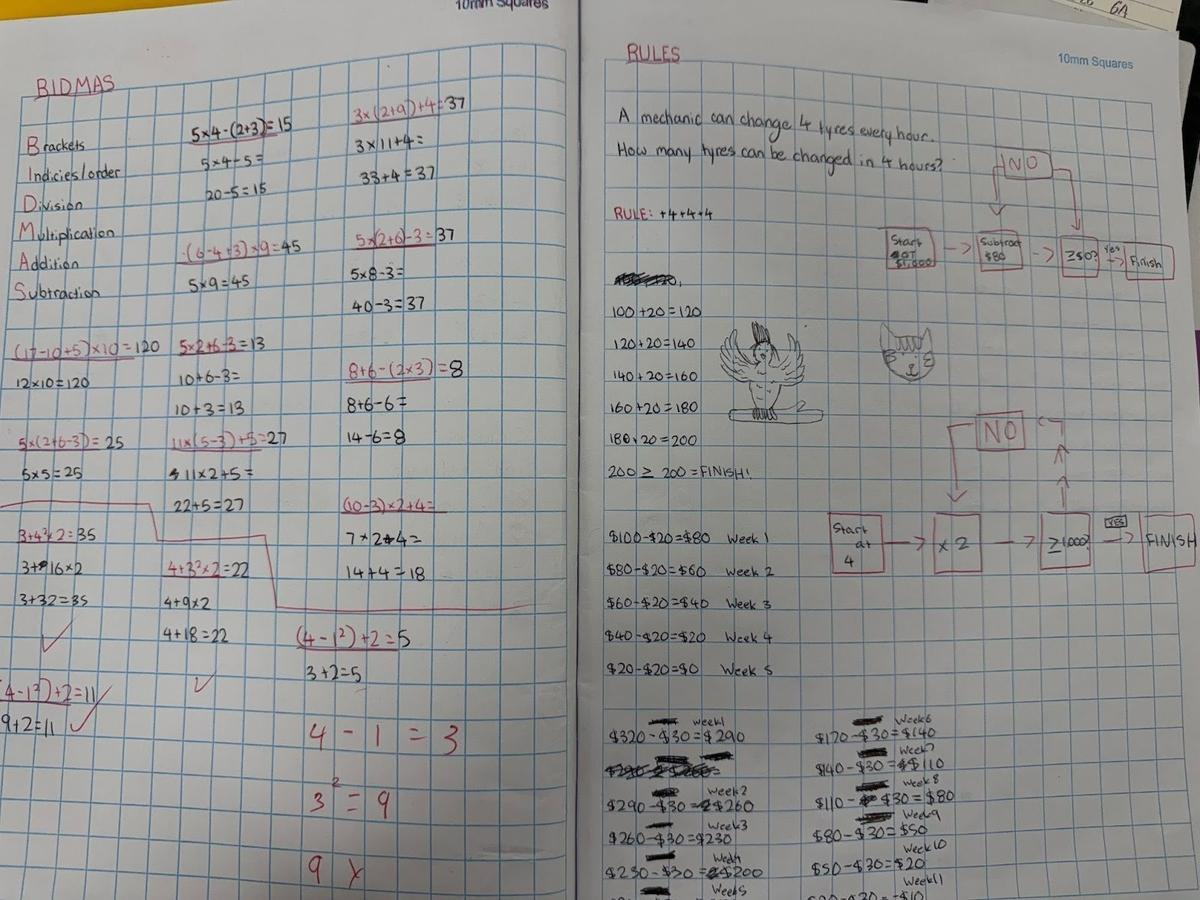 10mm Squares
BIDMAS
Brackets
Indicies/order
Division
Multiplication
Addition
Subtraction
5×4-(2+3)=15
5×4-5=
20-5=15
3×(2+9)+4=37
3×11+4=
33+4=37
(6-4+3)×9=45
5×9=45
5×(2+6)-3=37
5×8-3=
40-3=37
(17-10+5)×10=120
12×10=120
5×2+6-3=13
10+6-3=
10+3=13
8+6-(2×3)=8
8+6-6=
14-6=8
5×(2+6-3)=25
5×5=25
11×(5-3)+5=27
11×2+5=
22+5=27
(10-3)×2+4=
7×2+4=
14+4=18
3+4²×2=35
3+16×2
3+32=35
4+3²×2=22
4+9×2
4+18=22
(4-1²)+2=5
3+2=5
(4-1²)+2=11
9+2=11
4-1=3
3²=9
9
6A
10mm Squares
RULES
A mechanic can change 4 tyres every hour.
How many tyres can be changed in 4 hours?
RULE: +4+4+4
NO
Start
$1,000
Subtract
$80
≥50?
Yes
Finish
100+20=120
120+20=140
140+20=160
160+20=180
180+20=200
200 ≥ 200 =FINISH!
NO
Start
at
4
×2
≥1,000?
YES
FINISH
$100-$20=$80 Week 1
$80-$20=$60 Week 2
$60-$20=$40 Week 3
$40-$20=$20 Week 4
$20-$20=$0 Week 5
Week1
$320-$30=$290
Week2
$290-$30=$260
Week3
$260-$30=$230
Week4
$230-$30=$200
Week5
Week6
$170-$30=$140
Week7
$140-$30=$$110
Week8
$110-$30=$80
Week9
$80-$30=$50
Week10
$50-$30=$20
Week11